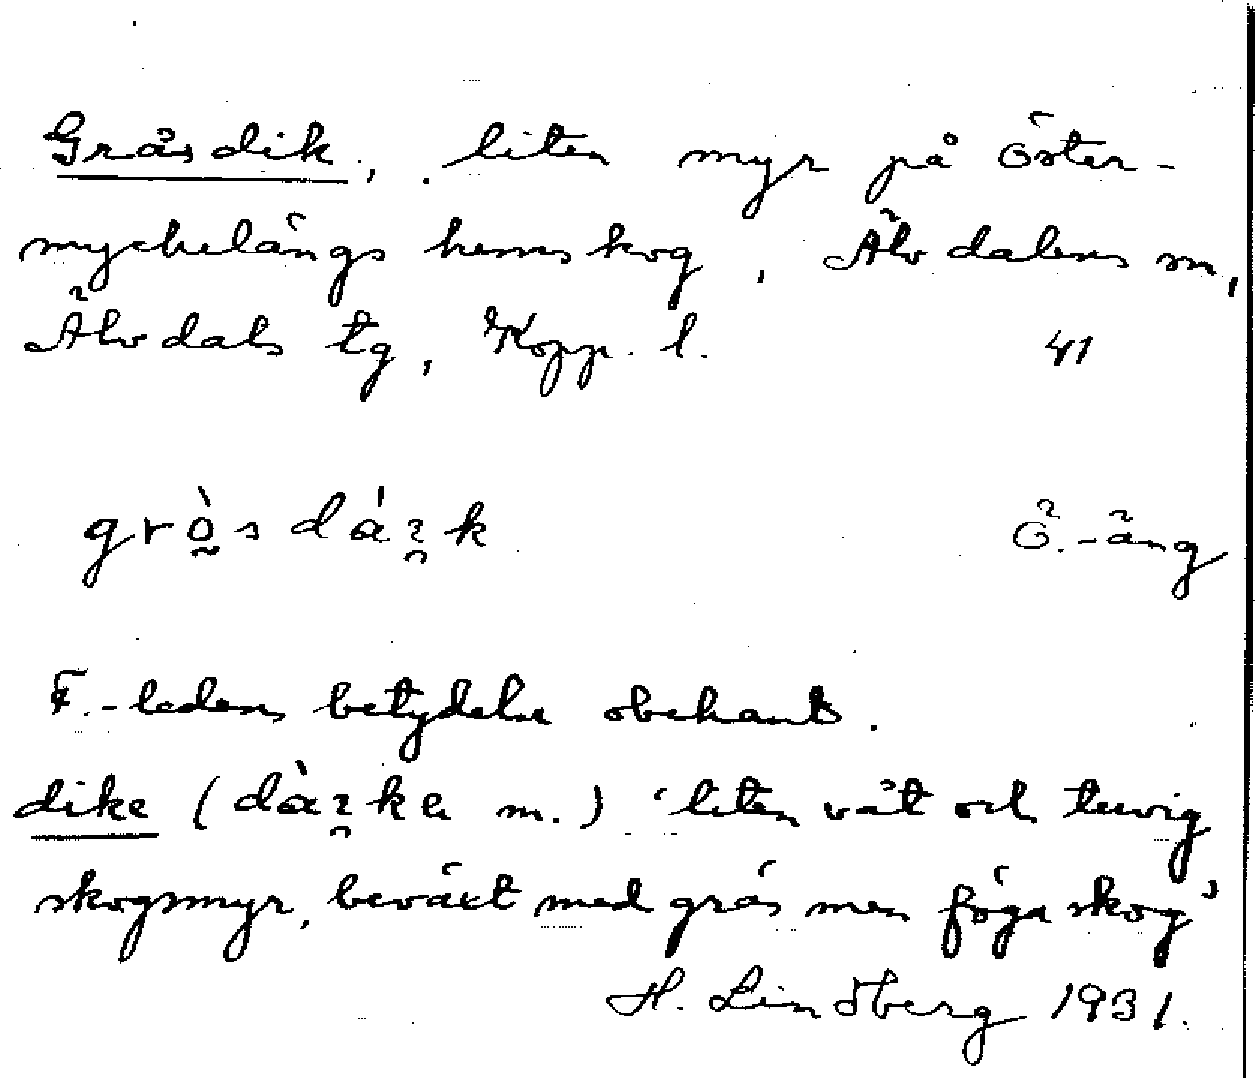 Gråsdik, liten myr på Öster-
myckelängs hemskog, Älvdalens sn,
Älvdals tg, Kopp. l. 41
Ö.-äng
F.-ledens betydelse obekant.
dike ( m.) 'liten våt och tuvig
skogsmyr, beväxt med gräs men föga skog'
H. Lindberg 1931.